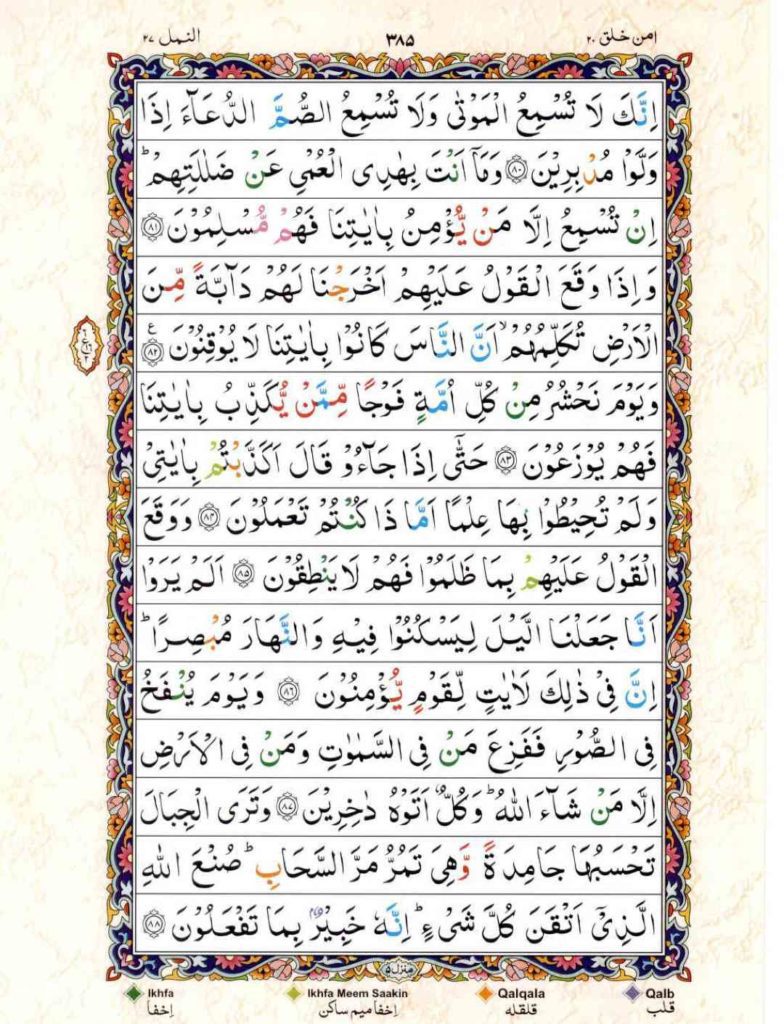 امن خلق ٢٠ ٣٨٥ النمل ٢٧
اِنَّكَ لَا تُسْمِعُ الْمَوْتٰى وَلَا تُسْمِعُ الصُّمَّ الدُّعَآءَ اِذَا
وَلَّوْا مُدْبِرِيْنَ ﴿٨٠﴾ وَمَآ اَنْتَ بِهٰدِى الْعُمْىِ عَنْ ضَلٰلَتِهِمْ ؕ
اِنْ تُسْمِعُ اِلَّا مَنْ يُّؤْمِنُ بِاٰيٰتِنَا فَهُمْ مُّسْلِمُوْنَ ﴿٨١﴾
وَاِذَا وَقَعَ الْقَوْلُ عَلَيْهِمْ اَخْرَجْنَا لَهُمْ دَآبَّةً مِّنَ
الْاَرْضِ تُكَلِّمُهُمْ ۙ اَنَّ النَّاسَ كَانُوْا بِاٰيٰتِنَا لَا يُوْقِنُوْنَ ﴿٨٢﴾ ع
وَيَوْمَ نَحْشُرُ مِنْ كُلِّ اُمَّةٍ فَوْجًا مِّمَّنْ يُّكَذِّبُ بِاٰيٰتِنَا
فَهُمْ يُوْزَعُوْنَ ﴿٨٣﴾ حَتّٰٓى اِذَا جَآءُوْ قَالَ اَكَذَّبْتُمْ بِاٰيٰتِىْ
وَلَمْ تُحِيْطُوْا بِهَا عِلْمًا اَمَّا ذَا كُنْتُمْ تَعْمَلُوْنَ ﴿٨٤﴾ وَوَقَعَ
الْقَوْلُ عَلَيْهِمْ بِمَا ظَلَمُوْا فَهُمْ لَا يَنْطِقُوْنَ ﴿٨٥﴾ اَلَمْ يَرَوْا
اَنَّا جَعَلْنَا الَّيْلَ لِيَسْكُنُوْا فِيْهِ وَالنَّهَارَ مُبْصِرًا ؕ
اِنَّ فِىْ ذٰلِكَ لَاٰيٰتٍ لِّقَوْمٍ يُّؤْمِنُوْنَ ﴿٨٦﴾ وَيَوْمَ يُنْفَخُ
فِى الصُّوْرِ فَفَزِعَ مَنْ فِى السَّمٰوٰتِ وَمَنْ فِى الْاَرْضِ
اِلَّا مَنْ شَآءَ اللّٰهُ ؕ وَكُلٌّ اَتَوْهُ دٰخِرِيْنَ ﴿٨٧﴾ وَتَرَى الْجِبَالَ
تَحْسَبُهَا جَامِدَةً وَّهِىَ تَمُرُّ مَرَّ السَّحَابِ ؕ صُنْعَ اللّٰهِ
الَّذِىْٓ اَتْقَنَ كُلَّ شَىْءٍ ؕ اِنَّهٗ خَبِيْرٌۢ بِمَا تَفْعَلُوْنَ ﴿٨٨﴾
منزل ٥
Ikhfa Ikhfa Meem Saakin Qalqala Qalb
اِخفا اِخفا میم ساکن قلقله قلب